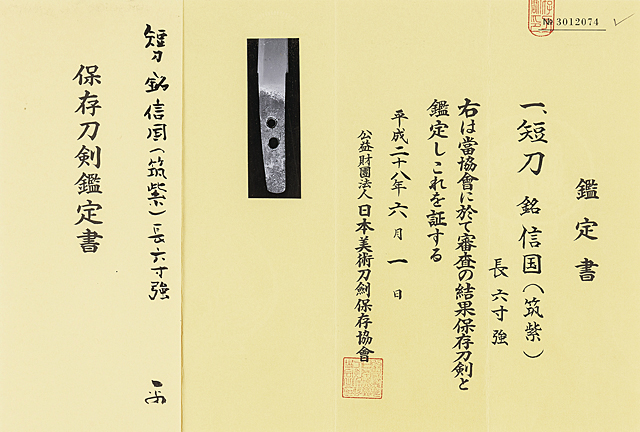 № 3012074
鑑定書
一、短刀 銘 信国(筑紫)
長 六寸強
右は當協會に於て審査の結果保存刀剣と
鑑定しこれを証する
平成二十八年 六月 一日
公益財團法人 日本美術刀劍保存協會
短刀 銘 信国(筑紫)長六寸強
保存刀剣鑑定書